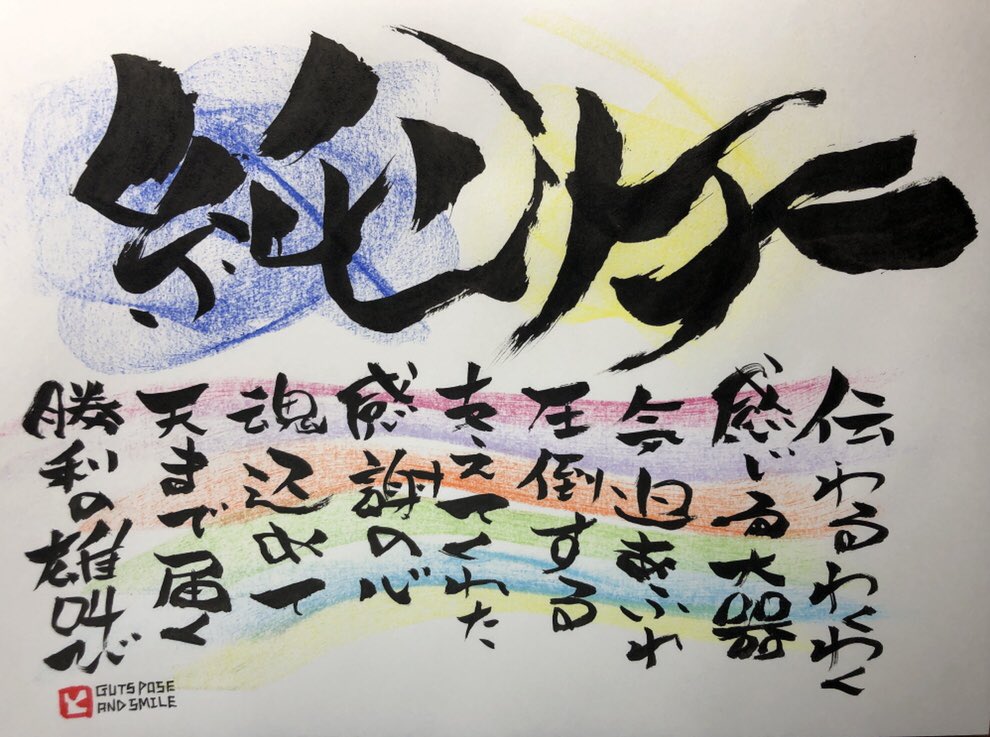 純
伝わるわくわく
感じる大器
気迫あふれ
圧倒する
支えてくれた
感謝の心
魂込めて
天まで届く
勝利の雄叫び
と
GUTSPOSE
ANDSMILE